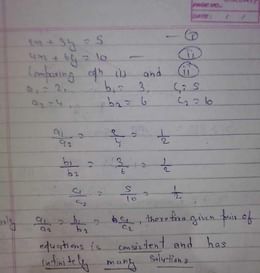 PAGE NO.
DATE: / /
2x + 3y = 5 — (i)
4x + 6y = 10 — (ii)
Comparing eqn (i) and (ii)
a1 = 2, b1 = 3, c1 = 5
a2 = 4, b2 = 6 c2 = 10
a1/a2 = 2/4 = 1/2
b1/b2 = 3/6 = 1/2
c1/c2 = 5/10 = 1/2
a1/a2 = b1/b2 = c1/c2, therefore given pair of
equations is consistent and has
infinitely many solutions